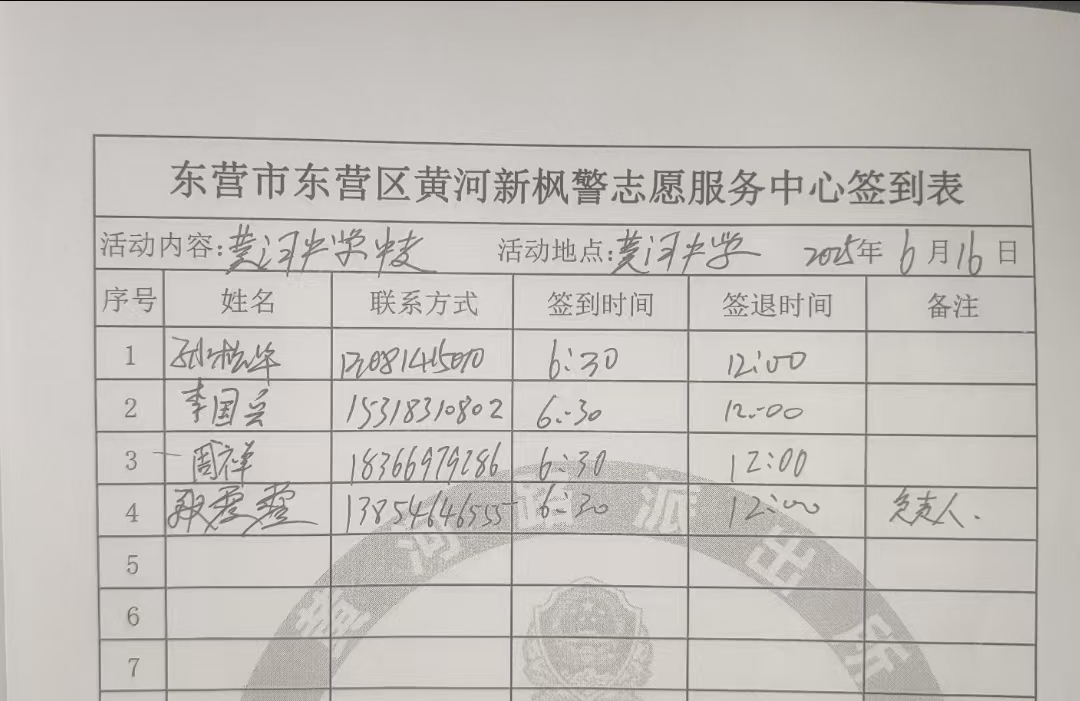 东营市东营区黄河新枫警志愿服务中心签到表
活动内容:黄河中学 活动地点:黄河中学 2025年 6月16日
序号 姓名 联系方式 签到时间 签退时间 备注
1 孙松华 6:30 12:00
2 李国兵 15318310802 6:30 12:00
3 周祥 18366979286 6:30 12:00
4 13854646555 6:30 12:00 负责人.
5
6
7
黄河路派出所